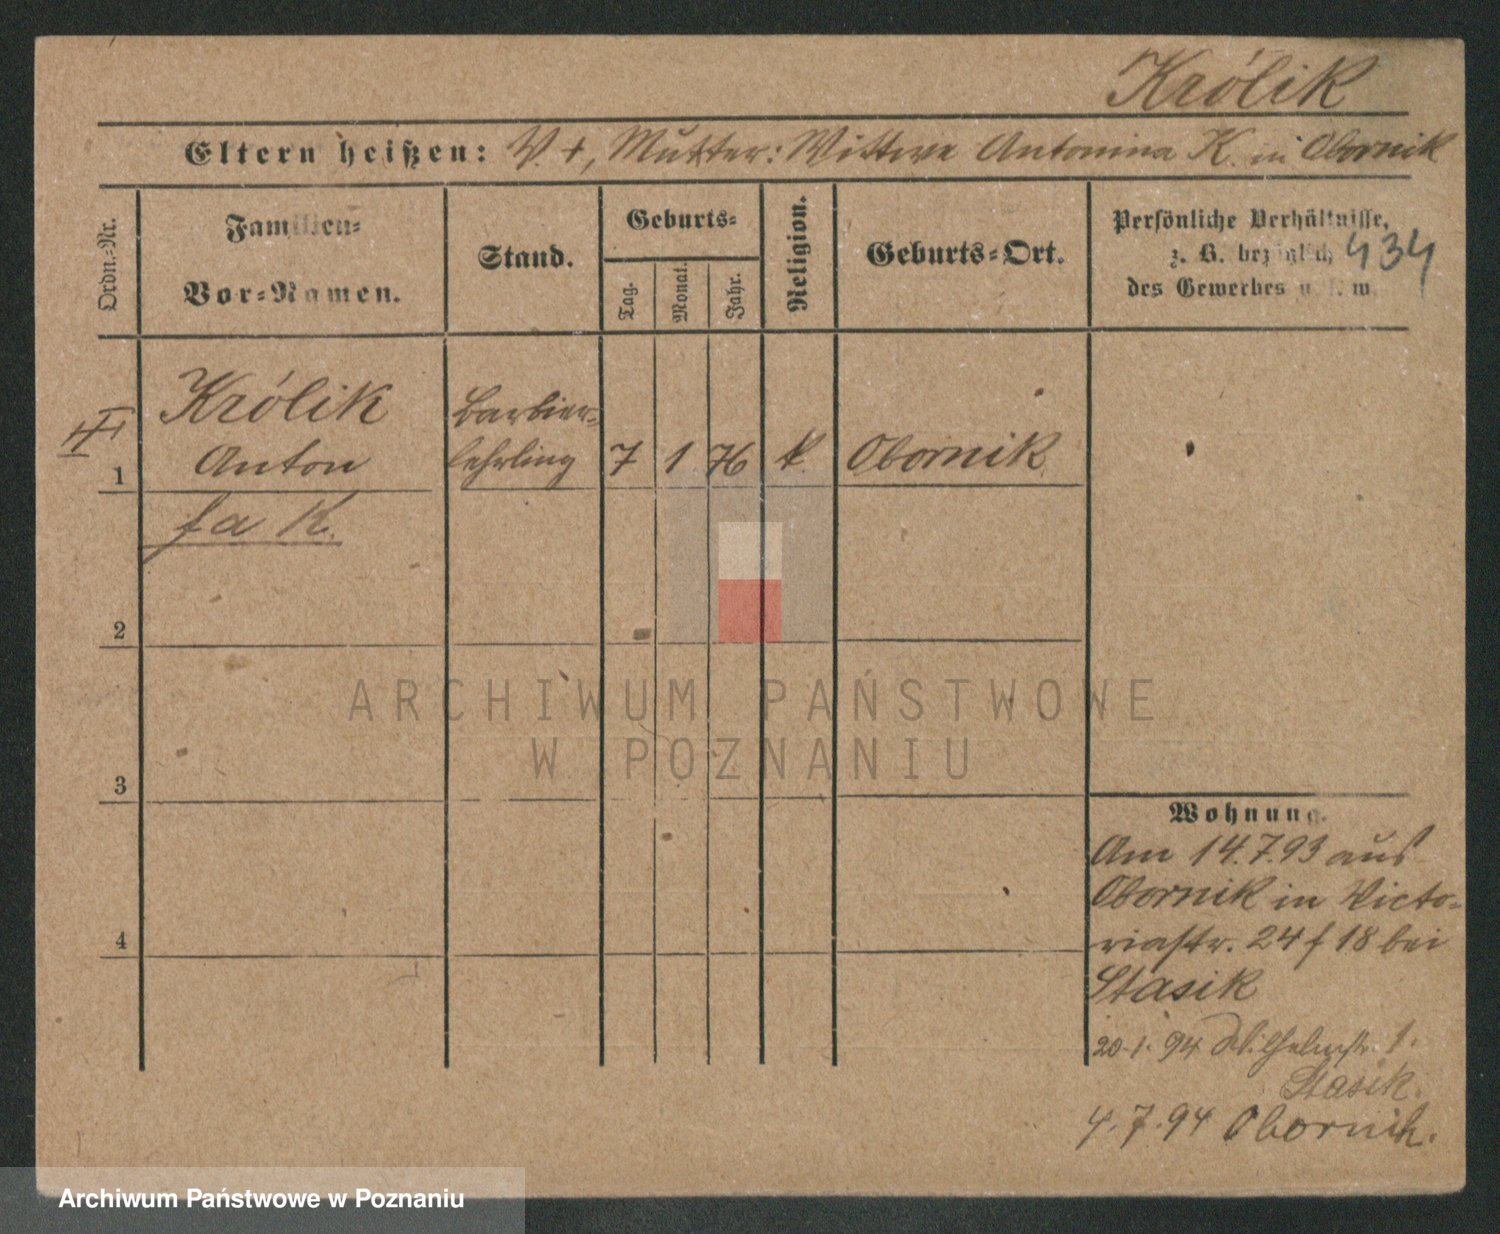 Królik
Eltern heißen: V. +, Mutter: Wittwe Antonina K. in Obornik
Ordn.-Nr.
Familien-
Vor-Namen.
Stand.
Geburts-
Tag.
Monat.
Jahr.
Religion.
Geburts-Ort.
Persönliche Verhältnisse,
z. B. bezüglich
des Gewerbes u. s. w.
434
Królik
Anton
Barbier-
lehrling
7 1 76 k. Obornik
1
fa K.
2
ARCHIWUM PAŃSTWOWE
W POZNANIU
3
Wohnung.
Am 14.7.93 aus
Obornik in Victo-
riastr. 24 f 18 bei
4
Stasik
20.1.94 Wilhelmstr. 1.
Stasik.
4.7.94 Obornik.
Archiwum Państwowe w Poznaniu